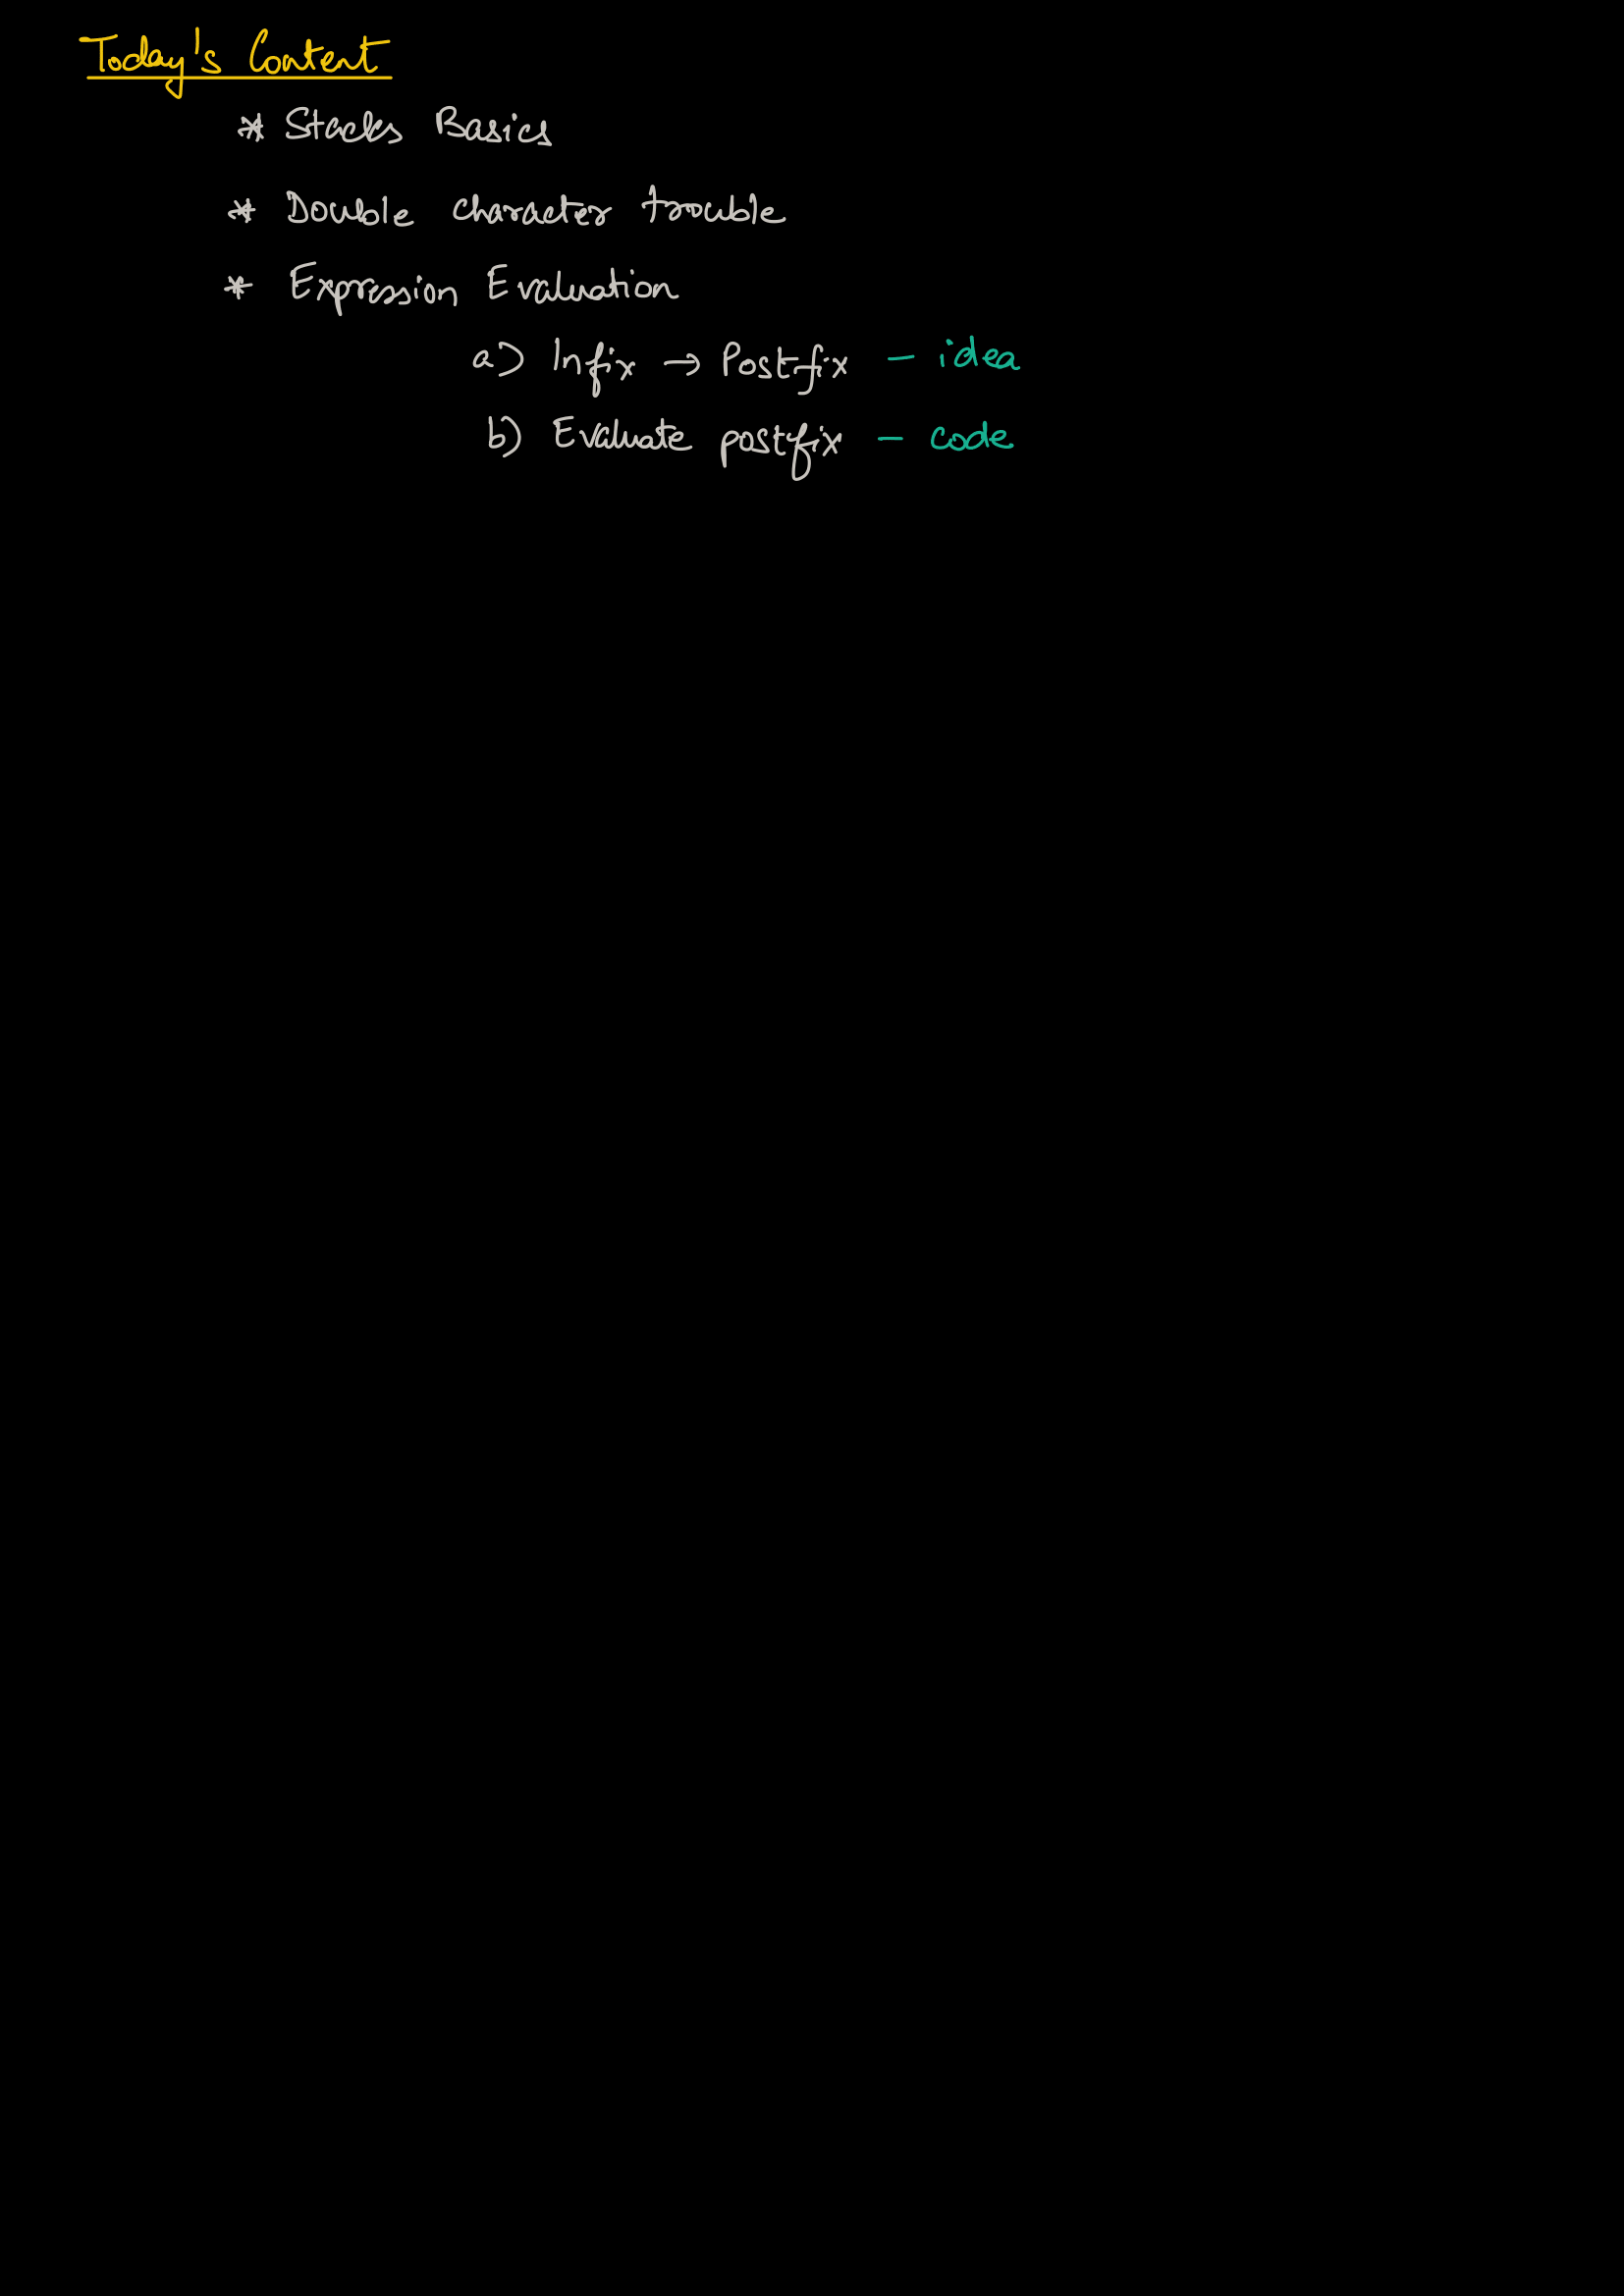 Today's Content
* Stacks Basics
* Double character trouble
* Expression Evaluation
a) Infix → Postfix - idea
b) Evaluate postfix - code